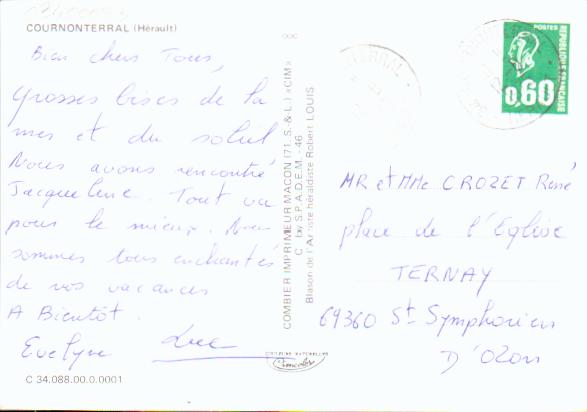 COURNONTERRAL (Hérault)
Bien chers Tous,
Grosses bises de la
mer et du soleil
Nous avons rencontré
Jacqueline. Tout va
pour le mieux. Nous
sommes tous enchantés
de nos vacances
A Bientôt.
Evelyne Luc
C 34.088.00.0.0001
COMBIER IMPRIMEUR MACON (71. S.-&-L.) «CIM»
C by S.P.A.D.E.M. - 46
Blason de l'Artiste héraldiste Robert LOUIS
POSTES
REPUBLIQUE FRANCAISE
0,60
MR et MMe CROZET René
place de l'Eglise
TERNAY
69360 St Symphorien
D'Ozon